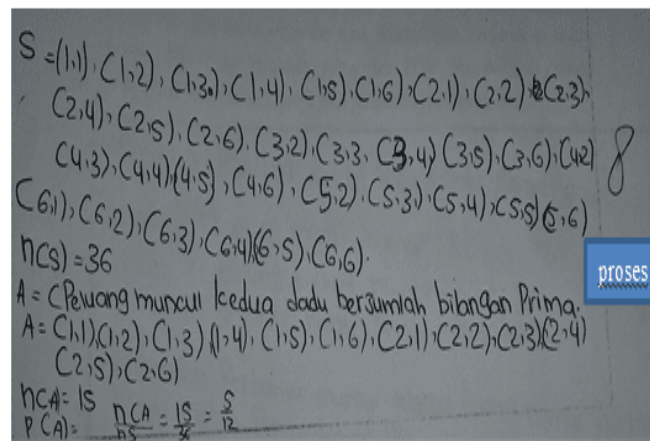 S = (1,1), (1,2), (1,3), (1,4), (1,5), (1,6), (2,1), (2,2) (2,3),
(2,4), (2,5), (2,6), (3,2), (3,3, (3,4) (3,5), (3,6), (4,2)
(4,3), (4,4) (4,5), (4,6), (5,2), (5,3), (5,4), (5,5) (5,6)
(6,1), (6,2), (6,3), (6,4) (6,5), (6,6).
8
n(S) = 36
proses
A = (Peluang muncul kedua dadu berjumlah bilangan Prima.
A = (1,1), (1,2), (1,3) (1,4), (1,5), (1,6), (2,1), (2,2), (2,3) (2,4)
(2,5), (2,6)
n(A) = 15
P(A) = n(A / n(S = 15/36 = 5/12